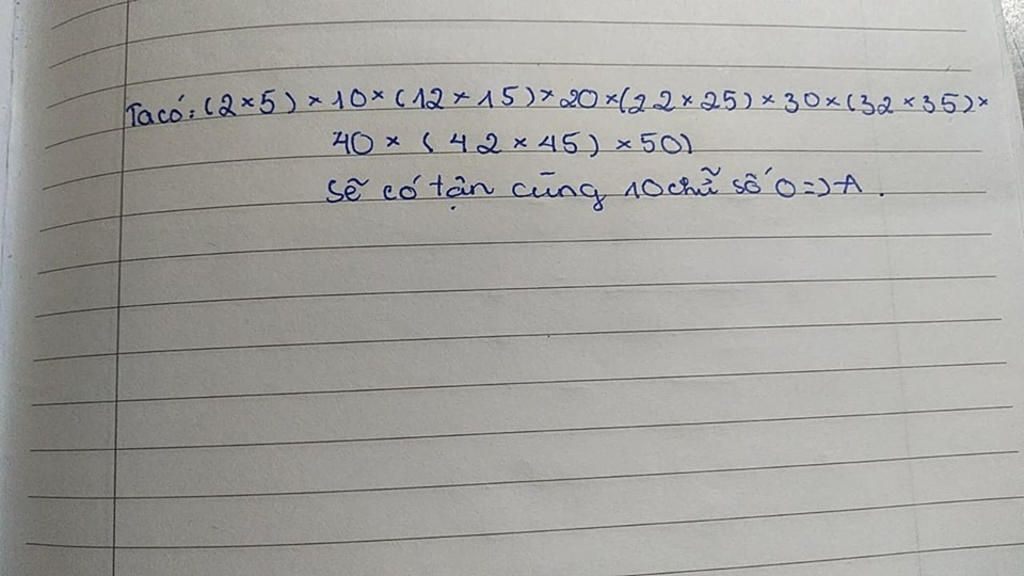 Ta có: (2×5)×10×(12×15)×20×(22×25)×30×(32×35)×
40×(42×45)×50)
Sẽ có tận cũng 10 chữ số 0=)A.